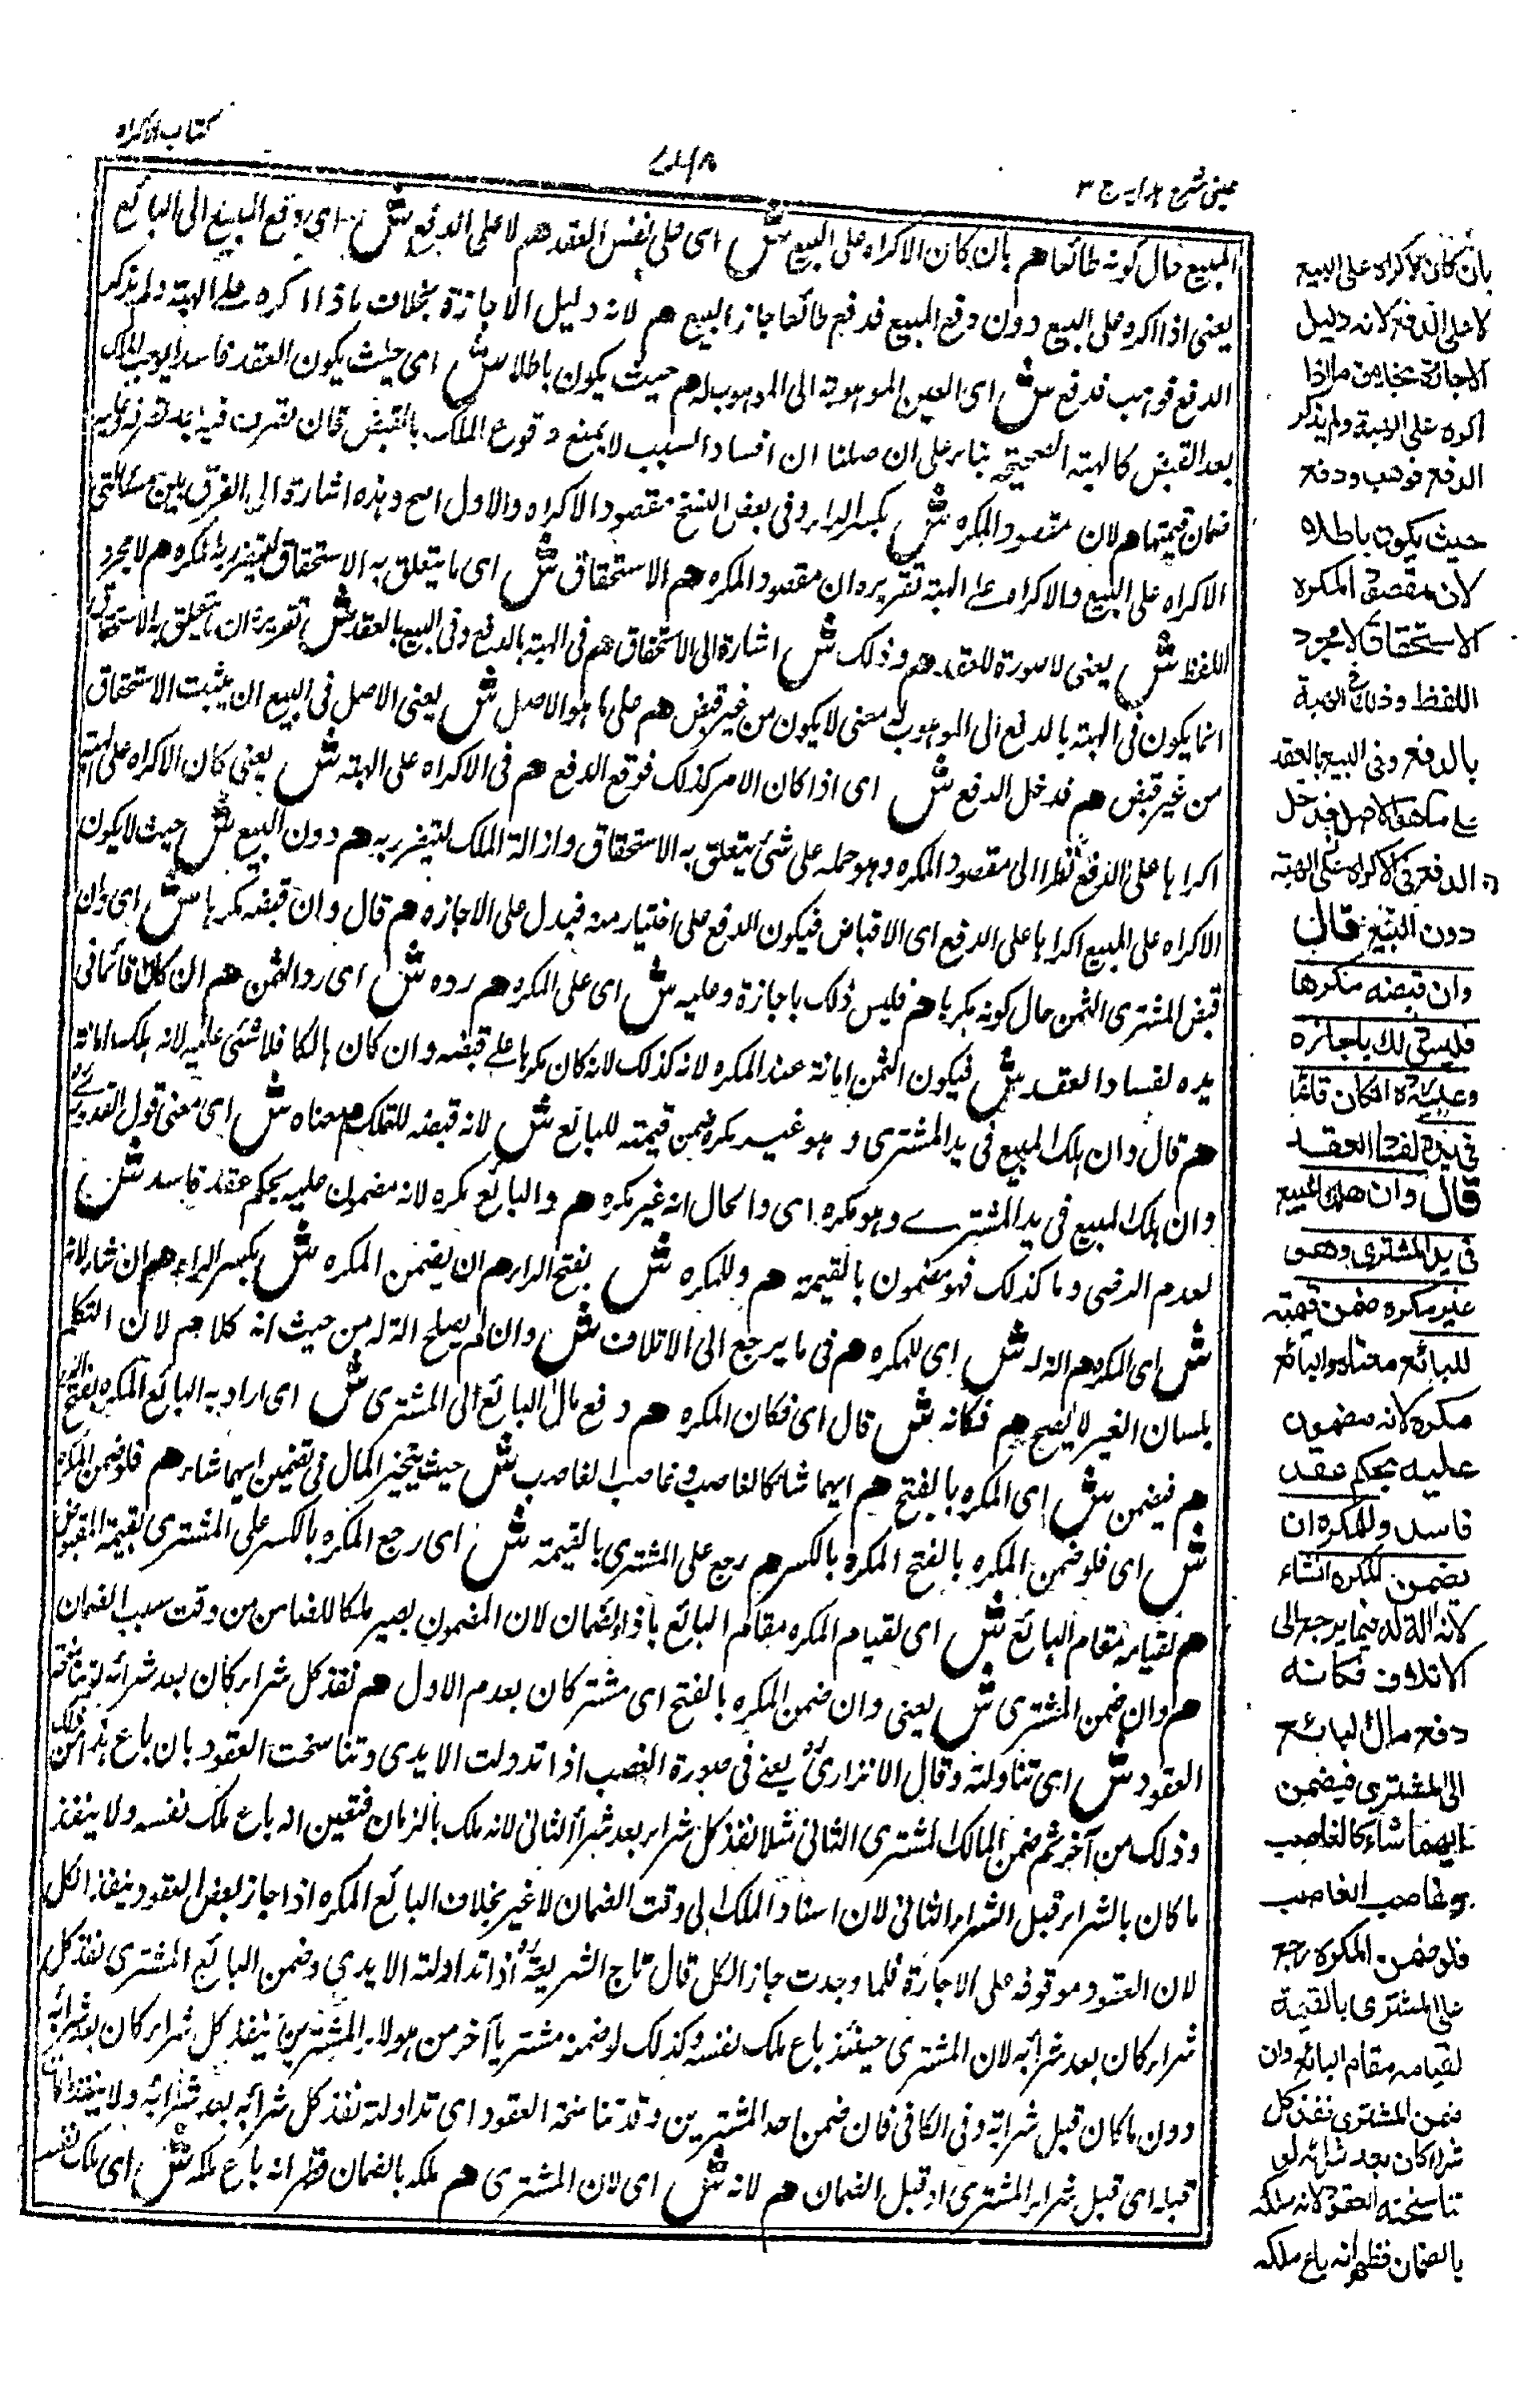 کتاب الاکراہ
عینی شرح ہدایہ ج ۳
المبیع حال کونہ طائعا هم بان کان الاکراہ علی البیع ش ای علی نفس العقد هم لا علی الدفع ش ای دفع المبیع الی البائع
یعنی اذا اکرہ علی البیع دون دفع المبیع فدفع طائعا جاز البیع هم لانہ دلیل الاجازة بخلاف ما اذا اکرہ علی الهبة ولم یذکر
الدفع فوهب فدفع ش ای العین الموهوبة الی الموهوب لہ هم حیث یکون باطلا ش ای حیث یکون العقد فاسدا یوجب الملک
بعد القبض کالهبة الصحیحة بناء علی ان اصلنا ان افساد السبب لا یمنع وقوع الملک بالقبض فان تصرف فیہ بعد تصرفہ وعلیہ
ضمان قیمتها هم لان مقصود المکرہ ش بکسر الراء وفی بعض النسخ مقصود الاکراہ والاول اصح وهذہ اشارة الی الفرق بین مسألتی
الاکراہ علی البیع والاکراہ علی الهبة تقریرہ ان مقصود المکرہ هم الاستحقاق ش ای ما یتعلق بہ الاستحقاق لیتضرر بہ المکرہ هم لا مجرد
اللفظ ش یعنی لا صورة العقد هم وذلک ش اشارة الی الاستحقاق هم فی الهبة بالدفع وفی البیع بالعقد ش تقریرہ ان ما یتعلق بہ الاستحقاق
انما یکون فی الهبة بالدفع الی الموهوب لہ معنی لا یکون من غیر قبض هم علی ما هو الاصل ش یعنی الاصل فی البیع ان یثبت الاستحقاق
من غیر قبض هم فدخل الدفع ش ای اذا کان الامر کذلک فوقع الدفع هم فی الاکراہ علی الهبة ش یعنی کان الاکراہ علی الهبة
اکراها علی الدفع نظرا الی مقصود المکرہ وهو حملہ علی شیٔ یتعلق بہ الاستحقاق وازالة الملک لیتضرر بہ هم دون البیع ش حیث لا یکون
الاکراہ علی المبیع اکراها علی الدفع ای الاقباض فیکون الدفع علی اختیار منہ فیدل علی الاجازہ هم قال وان قبضہ مکرها ش ای وان
قبض المشتری الثمن حال کونہ مکرها هم فلیس ذلک باجازة وعلیہ ش ای علی المکرہ هم ردہ ش ای رد الثمن هم ان کان قائما فی
یدہ لفساد العقد ش فیکون الثمن امانة عند المکرہ لانہ کذلک لانہ کان مکرها علی قبضہ وان کان هالکا فلا شیٔ علیہ لانہ هلک امانة
هم قال وان هلک المبیع فی ید المشتری وهو غیر مکرہ ضمن قیمتہ للبائع ش لانہ قبضہ للتملک هم معناہ ش ای معنی قول القدوری
وان هلک المبیع فی ید المشتری وهو مکرہ ای والحال انہ غیر مکرہ هم والبائع مکرہ لانہ مضمون علیہ بحکم عقد فاسد ش
لعدم الرضی وما کذلک فهو مضمون بالقیمة هم وللمکرہ ش بفتح الراء هم ان یضمن المکرہ ش بکسر الراء هم ان شاء لانہ
ش ای المکرہ هم آلة لہ ش ای للمکرہ هم فی ما یرجع الی الاتلاف ش وان لم یصلح آلة لہ من حیث انہ کلام لان التکلم
بلسان الغیر لا یصح هم فکانہ ش قال ای فکان المکرہ هم دفع مال البائع الی المشتری ش ای اراد بہ البائع المکرہ بفتح الراء
هم فیضمن ش ای المکرہ بالفتح هم ایهما شاء کالغاصب وغاصب الغاصب ش حیث یتخیر المالک فی تضمین ایهما شاء هم فلو ضمن المکرہ
ش ای فلو ضمن المکرہ بالفتح المکرہ بالکسر هم رجع علی المشتری بالقیمة ش ای رجع المکرہ بالکسر علی المشتری بقیمة المقبوض
هم لقیامہ مقام البائع ش ای لقیام المکرہ مقام البائع باداء الضمان لان المضمون یصیر ملکا للضامن من وقت سبب الضمان
هم وان ضمن المشتری ش یعنی وان ضمن المکرہ بالفتح ای مشتر کان بعدم الاول هم نفذ کل شراء کان بعد شرائہ لو تناسخته
العقود ش ای تناولتہ وقال الاتزاری یعنی فی صورة الغصب اذا تدولت الایدی وتناسخت العقود بان باع هذا من ذلک
وذلک من آخر ثم ضمن المالک المشتری الثانی مثلا نفذ کل شراء بعد شراء الثانی لانہ ملک بالزمان فتعین انہ باع ملک نفسہ ولا ینفذ
ما کان بالشراء قبل الشراء الثانی لان اسناد الملک الی وقت الضمان لا غیر بخلاف البائع المکرہ اذا اجاز بعض العقود ینفذ الکل
لان العقود موقوفہ علی الاجازة فلما وجدت جاز الکل قال تاج الشریعة اذا تداولتہ الایدی وضمن البائع المشتری نفذ کل
شراء کان بعد شرائہ لان المشتری حینئذ باع ملک نفسہ وکذلک لو ضمنہ مشتریا آخر من هولاء المشترین ینفذ کل شراء کان بعد شرائہ
دون ما کان قبل شرائہ وفی الکافی فان ضمن احد المشترین وقد تناسختہ العقود ای تداولتہ نفذ کل شرائہ بعد شرائہ ولا ینفذ ما کان
قبلہ ای قبل شراء المشتری او قبل الضمان هم لانہ ش ای لان المشتری هم ملکہ بالضمان فظهر انہ باع ملکہ ش ای ملک نفسہ
بان کان الاکراہ علی البیع
لا علی الدفع لانہ دلیل
الاجازة بخلاف ما اذا
اکرہ علی الهبة ولم یذکر
الدفع فوهب ودفع
حیث یکون باطلا
لان مقصود المکرہ
الاستحقاق لا مجرد
اللفظ وذلک فی الهبة
بالدفع وفی البیع بالعقد
علی ما هو الاصل فدخل
الدفع فی الاکراہ علی الهبة
دون البیع قال
وان قبضہ مکرها
فلیس ذلک باجازة
وعلیہ ردہ ان کان قائما
فی یدہ لفساد العقد
قال وان هلک المبیع
فی ید المشتری وهو
غیر مکرہ ضمن قیمتہ
للبائع معناہ والبائع
مکرہ لانہ مضمون
علیہ بحکم عقد
فاسد وللمکرہ ان
یضمن المکرہ ان شاء
لانہ آلة لہ فیما یرجع الی
الاتلاف فکانہ
دفع مال البائع
الی المشتری فیضمن
ایهما شاء کالغاصب
وغاصب الغاصب
فلو ضمن المکرہ رجع
علی المشتری بالقیمة
لقیامہ مقام البائع وان
ضمن المشتری نفذ کل
شراء کان بعد شرائہ لو
تناسختہ العقود لانہ ملکہ
بالضمان فظهر انہ باع ملکہ